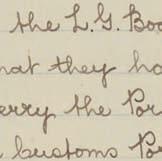 the L. G. Boo
hat they ha
erry the Por
customs Por